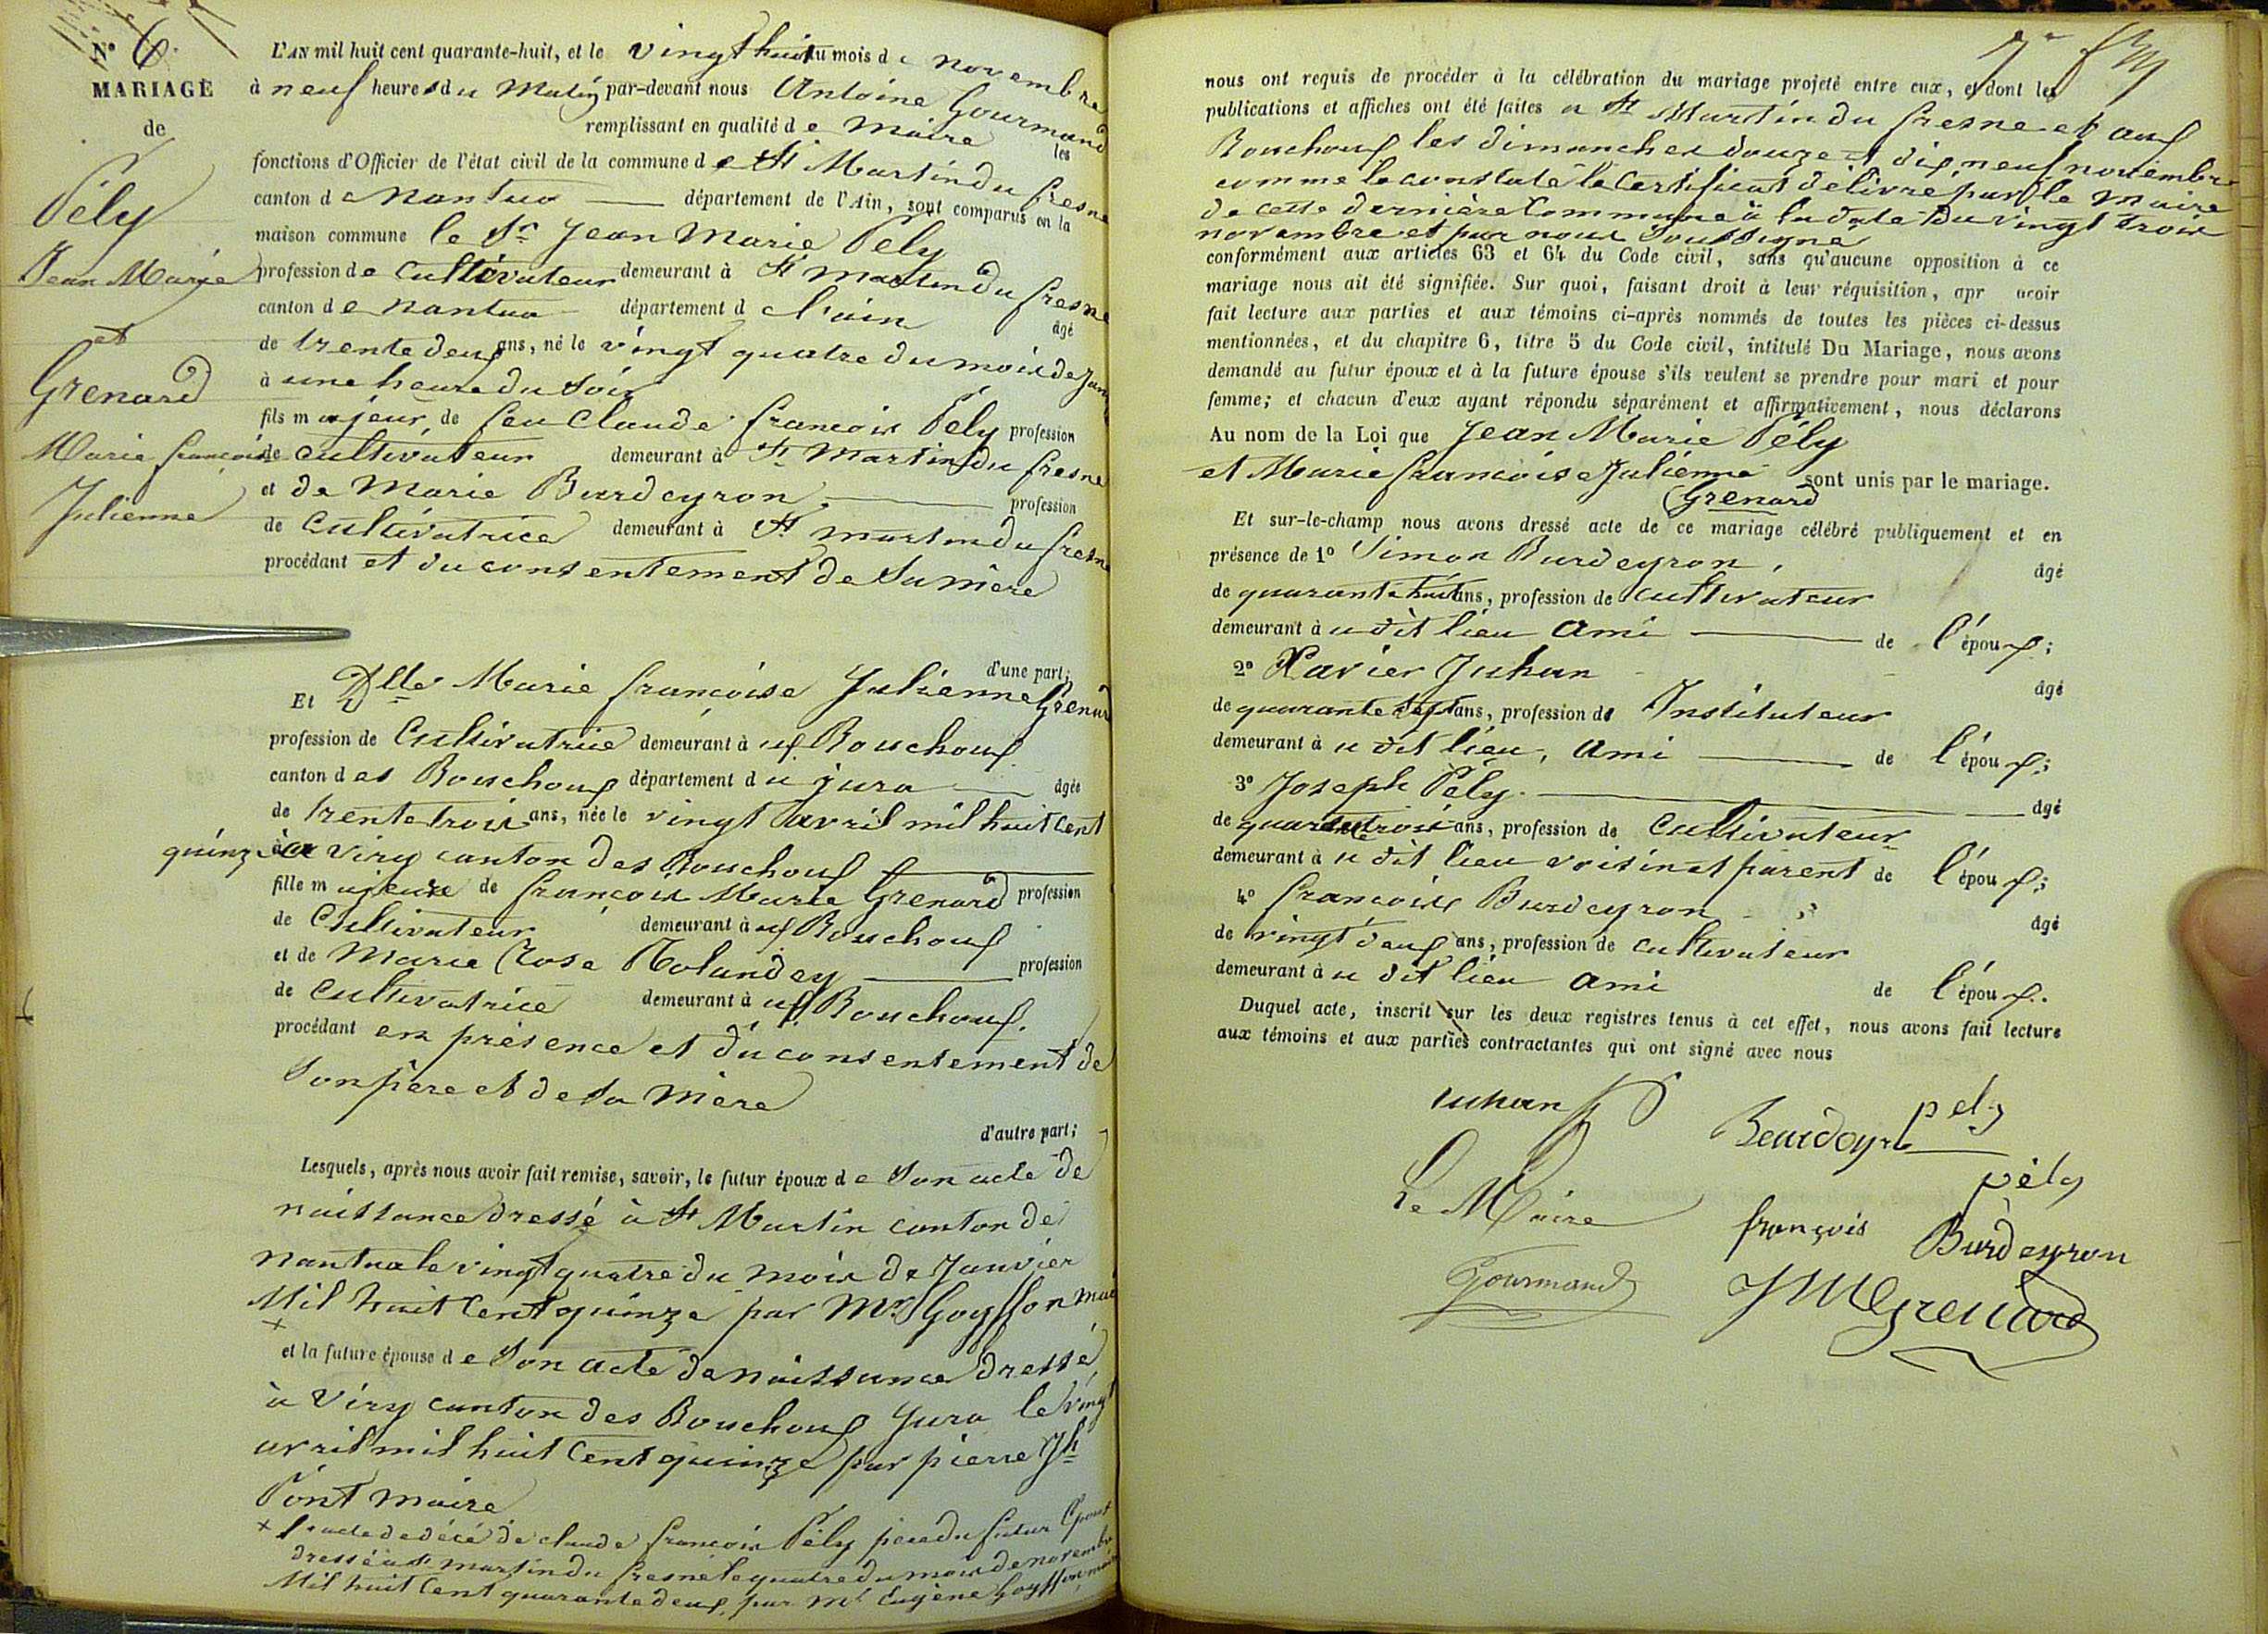 N° 6.
MARIAGE
de
Pély
Jean Marie
et
Grenard
Marie françoise
Julienne
L'AN mil huit cent quarante-huit, et le vingt huit du mois de novembre
à neuf heures du Matin par-devant nous Antoine Gourmand
remplissant en qualité de Maire les
fonctions d'Officier de l'état civil de la commune de St Martin du fresne
canton de Nantua département de l'Ain, sont comparus en la
maison commune le Sr Jean Marie Pély
profession de Cultivateur demeurant à St Martin du fresne
canton de Nantua département de l'ain âgé
de trente deux ans, né le vingt quatre du mois de
à une heure du soir
fils majeur, de feu Claude françois Pély profession
de cultivateur demeurant à St Martin du fresne
et de Marie Burdeyron profession
de Cultivatrice demeurant à St martin du fresne
procédant et du consentement de sa mère
d'une part;
Et Dlle Marie françoise Julienne Grenard
profession de Cultivatrice demeurant à ux Bouchoux
canton des Bouchoux département du jura âgée
de trente trois ans, née le vingt avril mil huit cent
quinze à viry canton des Bouchoux
fille majeure de françois Marie Grenard profession
de Cultivateur demeurant à ux Bouchoux
et de Marie Rose Rolandey profession
de Cultivatrice demeurant à ux Bouchoux.
procédant en présence et du consentement de
Son père et de sa mère
d'autre part;
Lesquels, après nous avoir fait remise, savoir, le futur époux de Son acte de
naissance dressé à St Martin canton de
nantua le vingt quatre du mois de Janvier
Mil huit cent quinze par Mr Goyffon
et la future épouse de Son acte de naissance dressé
à Viry canton des Bouchoux Jura le vingt
avril mil huit cent quinze par pierre Jh
Pont maire
+ l'acte de décé de claude françois Pély père du futur Epoux
dressé à St martin du fresne le quatre du mois de novembre
Mil huit cent quarante deux, par Mr Eugène Goyffon
nous ont requis de procéder à la célébration du mariage projeté entre eux, et dont les
publications et affiches ont été faites a St Martin du fresne et aux
Bouchoux les dimanches douze et dix neuf novembre
comme le constate le Certificat délivré par le Maire
de cette dernière Commune à la date du vingt trois
novembre et par nous Soussigné
conformément aux articles 63 et 64 du Code civil, sans qu'aucune opposition à ce
mariage nous ait été signifiée. Sur quoi, faisant droit à leur réquisition, apr avoir
fait lecture aux parties et aux témoins ci-après nommés de toutes les pièces ci-dessus
mentionnées, et du chapitre 6, titre 5 du Code civil, intitulé Du Mariage, nous avons
demandé au futur époux et à la future épouse s'ils veulent se prendre pour mari et pour
femme; et chacun d'eux ayant répondu séparément et affirmativement, nous déclarons
Au nom de la Loi que Jean Marie Pély
et Marie françoise Julienne sont unis par le mariage.
Grenard
Et sur-le-champ nous avons dressé acte de ce mariage célébré publiquement et en
présence de 1° Simon Burdeyron, âgé
de quarante huit ans, profession de cultivateur
demeurant à u dit lieu Ami de l'époux;
2° Xavier Juhan âgé
de quarante sept ans, profession de Instituteur
demeurant à u dit lieu, Ami de l'époux;
3° Joseph Pély. âgé
de quarante trois ans, profession de Cultivateur
demeurant à u dit lieu voisin et parent de l'époux;
4° françois Burdeyron âgé
de vingt deux ans, profession de cultivateur
demeurant à u dit lieu Ami de l'époux.
Duquel acte, inscrit sur les deux registres tenus à cet effet, nous avons fait lecture
aux témoins et aux parties contractantes qui ont signé avec nous
Juhan pely
pèly
Le Maire françois Burdeyron
Gourmand JMGrenard